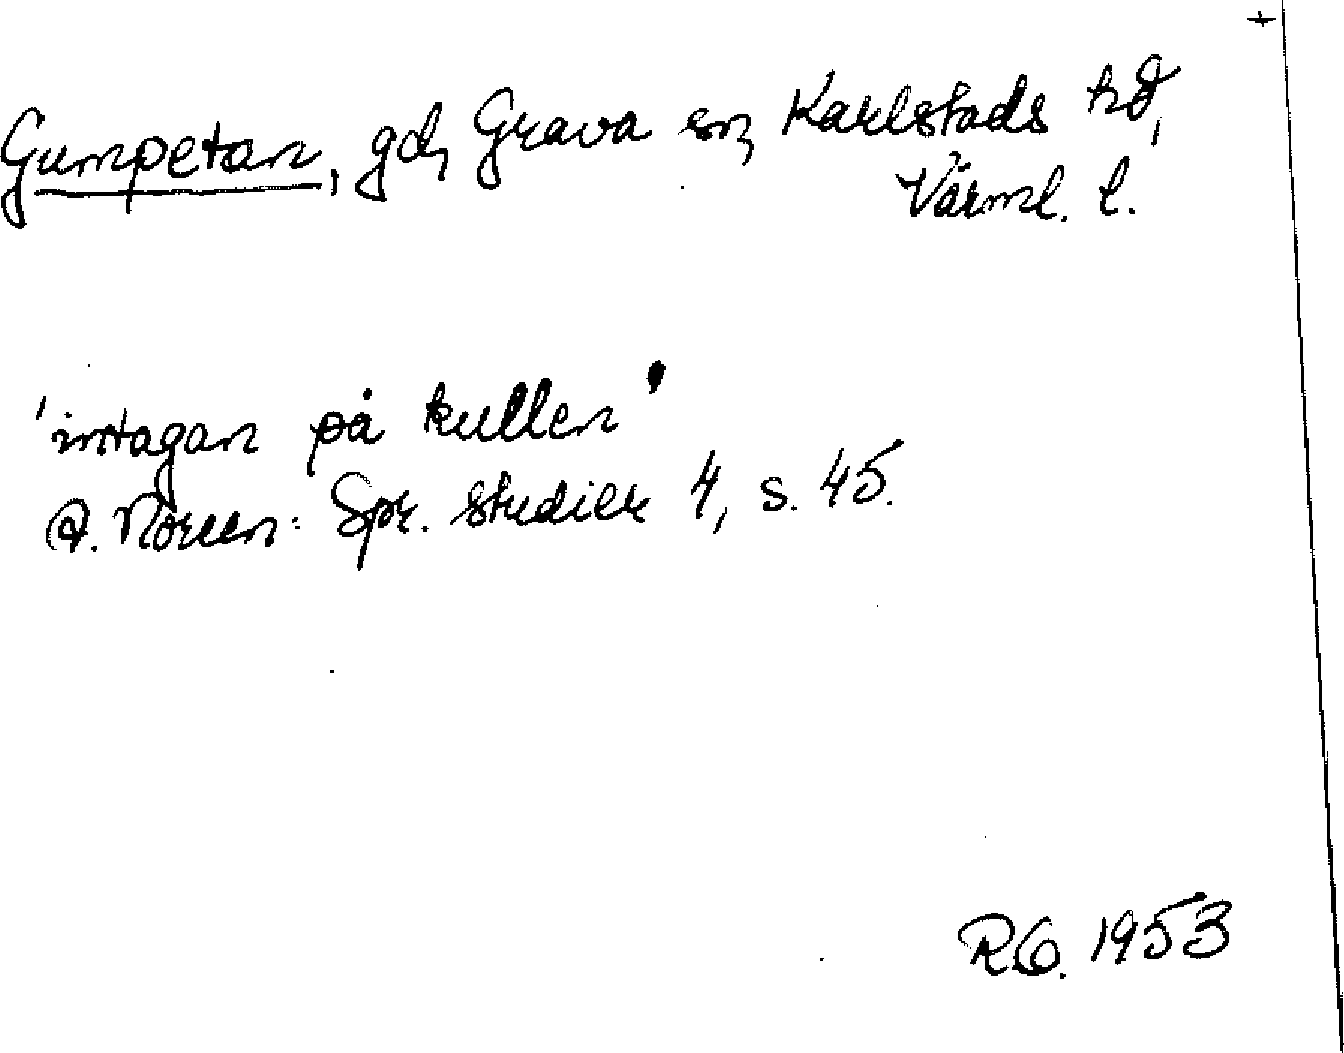 Gumpetan, gd, Grava sn, Karlstads hd,
Värml. l.
'intagan på kullen'
A. Noreen: Spr. studier 4, s. 45.
RG. 1953